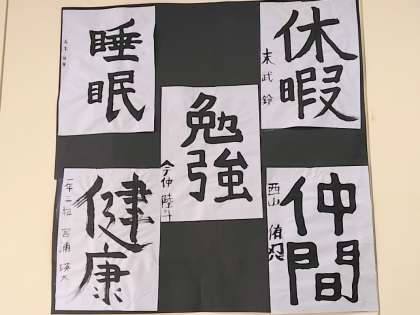 休暇
末武 鈴
睡眠
勉強
今仲 陸斗
仲間
西山
健康
一年一組 宮浦 瑛大